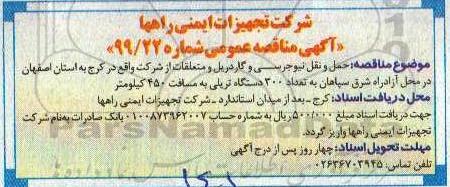 شرکت تجهیزات ایمنی راهها
«آگهی مناقصه عمومی شماره ۹۹/۲۲»
موضوع مناقصه: حمل و نقل نیوجرسی و گاردریل و متعلقات از شرکت واقع در کرج به استان اصفهان
در محل آزادراه شرق سپاهان به تعداد ۳۰۰ دستگاه تریلی به مسافت ۴۵۰ کیلومتر
محل دریافت اسناد: کرج - بعد از میدان استاندارد - شرکت تجهیزات ایمنی راهها
جهت دریافت اسناد مبلغ ۵۰۰/۰۰۰ ریال به شماره حساب ۰۱۰۰۸۷۳۹۶۲۰۰۷ بانک صادرات به نام شرکت
تجهیزات ایمنی راهها واریز گردد.
مهلت تحویل اسناد: چهار روز پس از درج آگهی
تلفن تماس: ۰۲۶۳۶۷۰۳۹۴۵